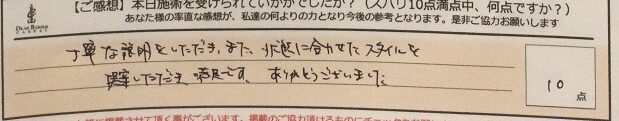 【ご感想】本日施術を受けられていかがでしたか?(ズバリ10点満点中、何点ですか?)
あなた様の率直な感想が、私達の何よりの力となり今後の参考となります。是非ご協力お願いします
丁寧な説明をいただき、また、状態に合わせたスタイルを
提案いただき 満足です。ありがとうございました。
10点